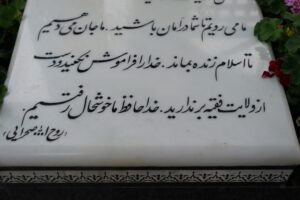 ما می رویم تا شما در امان باشید. ما جان می دهیم
تا اسلام زنده بماند. خدا را فراموش نکنید و دست
از ولایت فقیه برندارید. خداحافظ ما خوشحال رفتیم.
(روح الله صحرایی)